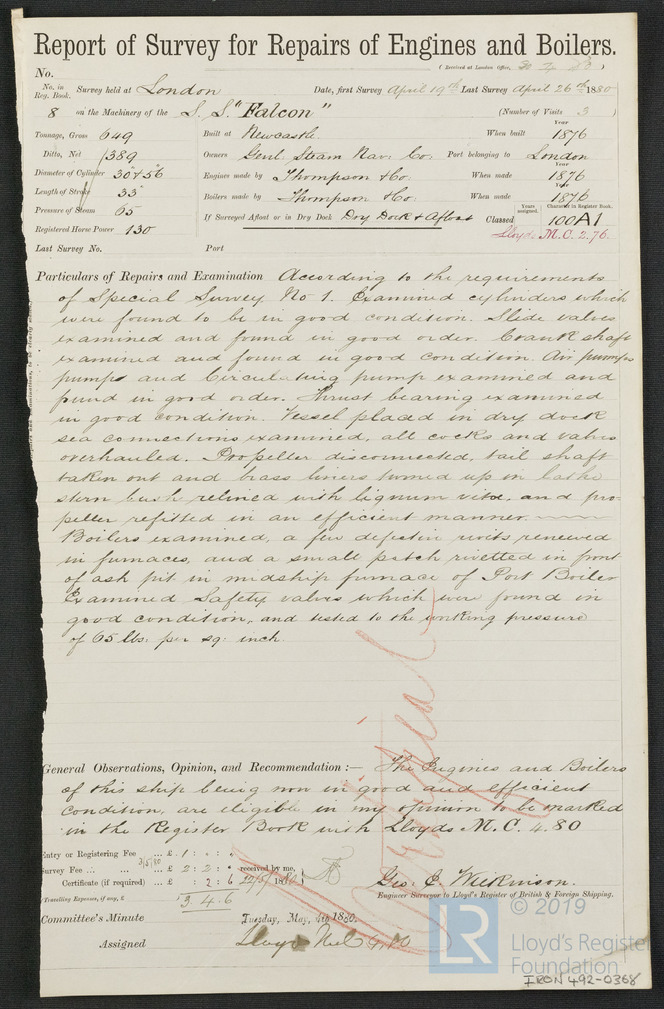 Report of Survey for Repairs of Engines and Boilers.
(Received at London Office,
No.
No. in Reg. Book. Survey held at London Date, first Survey April 19th Last Survey April 26th 1880
8 on the Machinery of the S.S. "Falcon" (Number of Visits 3 )
Tonnage, Gross 649 Built at Newcastle When built Year 1876
Ditto, Net 389 Owners Genl. Steam Nav. Co. Port belonging to London
Diameter of Cylinder 30 + 56 Engines made by Thompson & Co. When made Year 1876
Length of Stroke 33 Boilers made by Thompson & Co. When made Year 1876
Pressure of Steam 65 If Surveyed Afloat or in Dry Dock Dry Dock & Afloat Classed Years assigned. Character in Register Book. 100A1
Registered Horse Power 130 Lloyds M.C. 2.76.
Last Survey No. Port
Particulars of Repairs and Examination According to the requirements
of Special Survey No 1. Examined cylinders which
were found to be in good condition. Slide valves
examined and found in good order. Crank shaft
examined and found in good condition. Air pumps
pumps and Circulating pump examined and
fund in good order. Thrust bearing examined
in good condition. Vessel placed in dry dock
sea connections examined, all cocks and valves
overhauled. Propeller disconnected, tail shaft
taken out and brass liners turned up in lathe
stern bush relined with lignum vitæ, and pro-
peller refitted in an efficient manner.
Boilers examined, a few defective rivets renewed
in furnaces, and a small patch rivetted in front
of ash pit in midship furnace of Port Boiler
Examined Safety valves which were found in
good condition, and tested to the working pressure
of 65 lbs. per sq. inch.
General Observations, Opinion, and Recommendation :— The Engines and Boilers
of this ship being now in good and efficient
condition, are eligible in my opinion to be marked
in the Register Book with Lloyds M.C. 4.80
Entry or Registering Fee ... £ 1 : " : "
Survey Fee ... 3/5/80 ... £ 2 : 2 : " received by me,
Certificate (if required) ... £ : 2 : 6 1880
(Travelling Expenses, if any, £ 3.4.6
Geo. C. Wilkinson.
Engineer Surveyor to Lloyd's Register of British & Foreign Shipping.
Committee's Minute Tuesday, May, 4th 1880.
Assigned Lloyds
© 2019
LR
Lloyd's Register
Foundation
IRON 492-0368